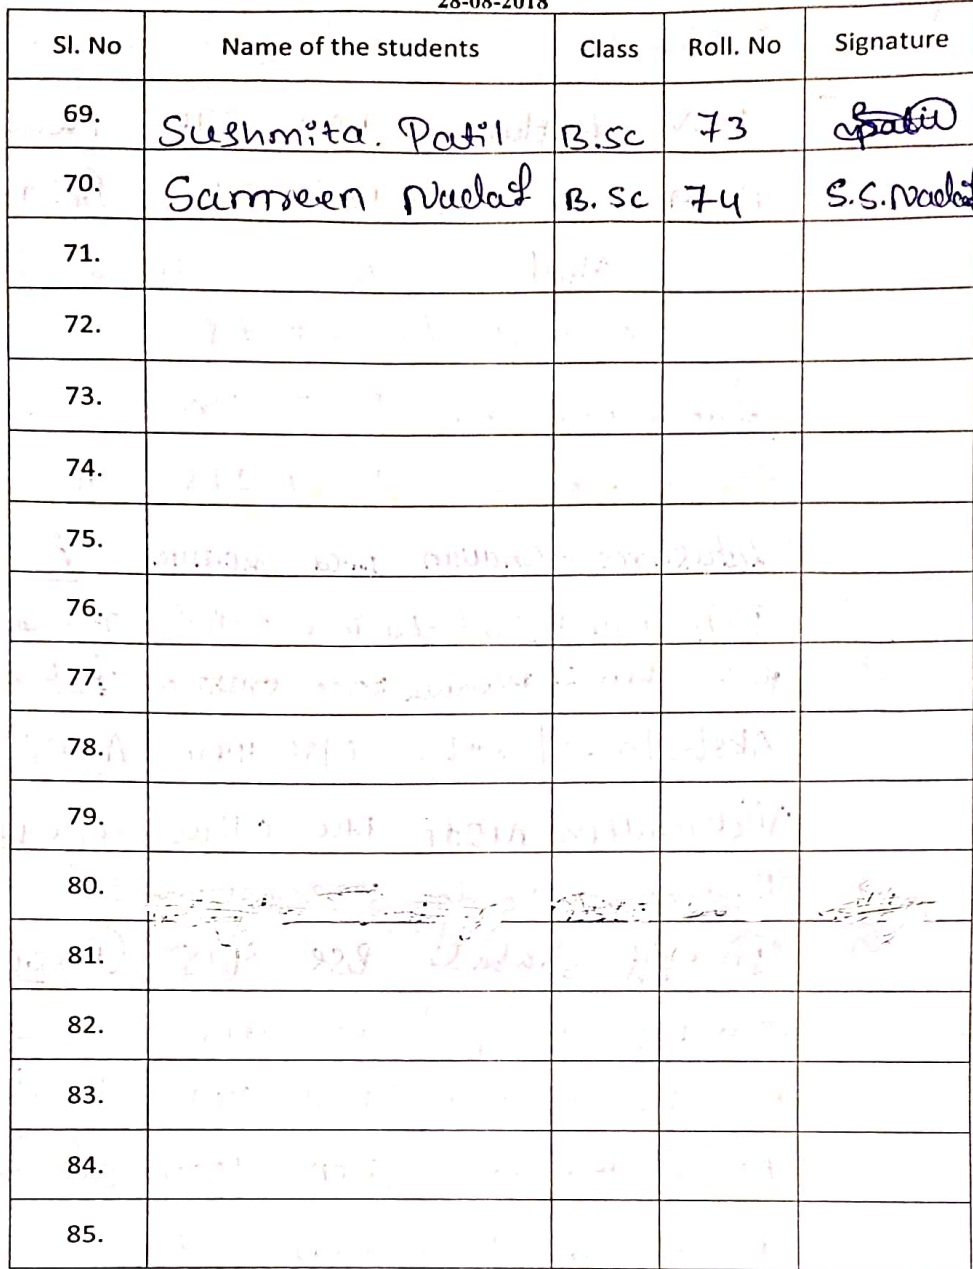 28-08-2018
Sl. No Name of the students Class Roll. No Signature
69. Sushmita. Patil B.Sc 73 Patil
70. Samreen Nadaf B. Sc 74 S.S.Nadaf
71.
72.
73.
74.
75.
76.
77.
78.
79.
80.
81.
82.
83.
84.
85.